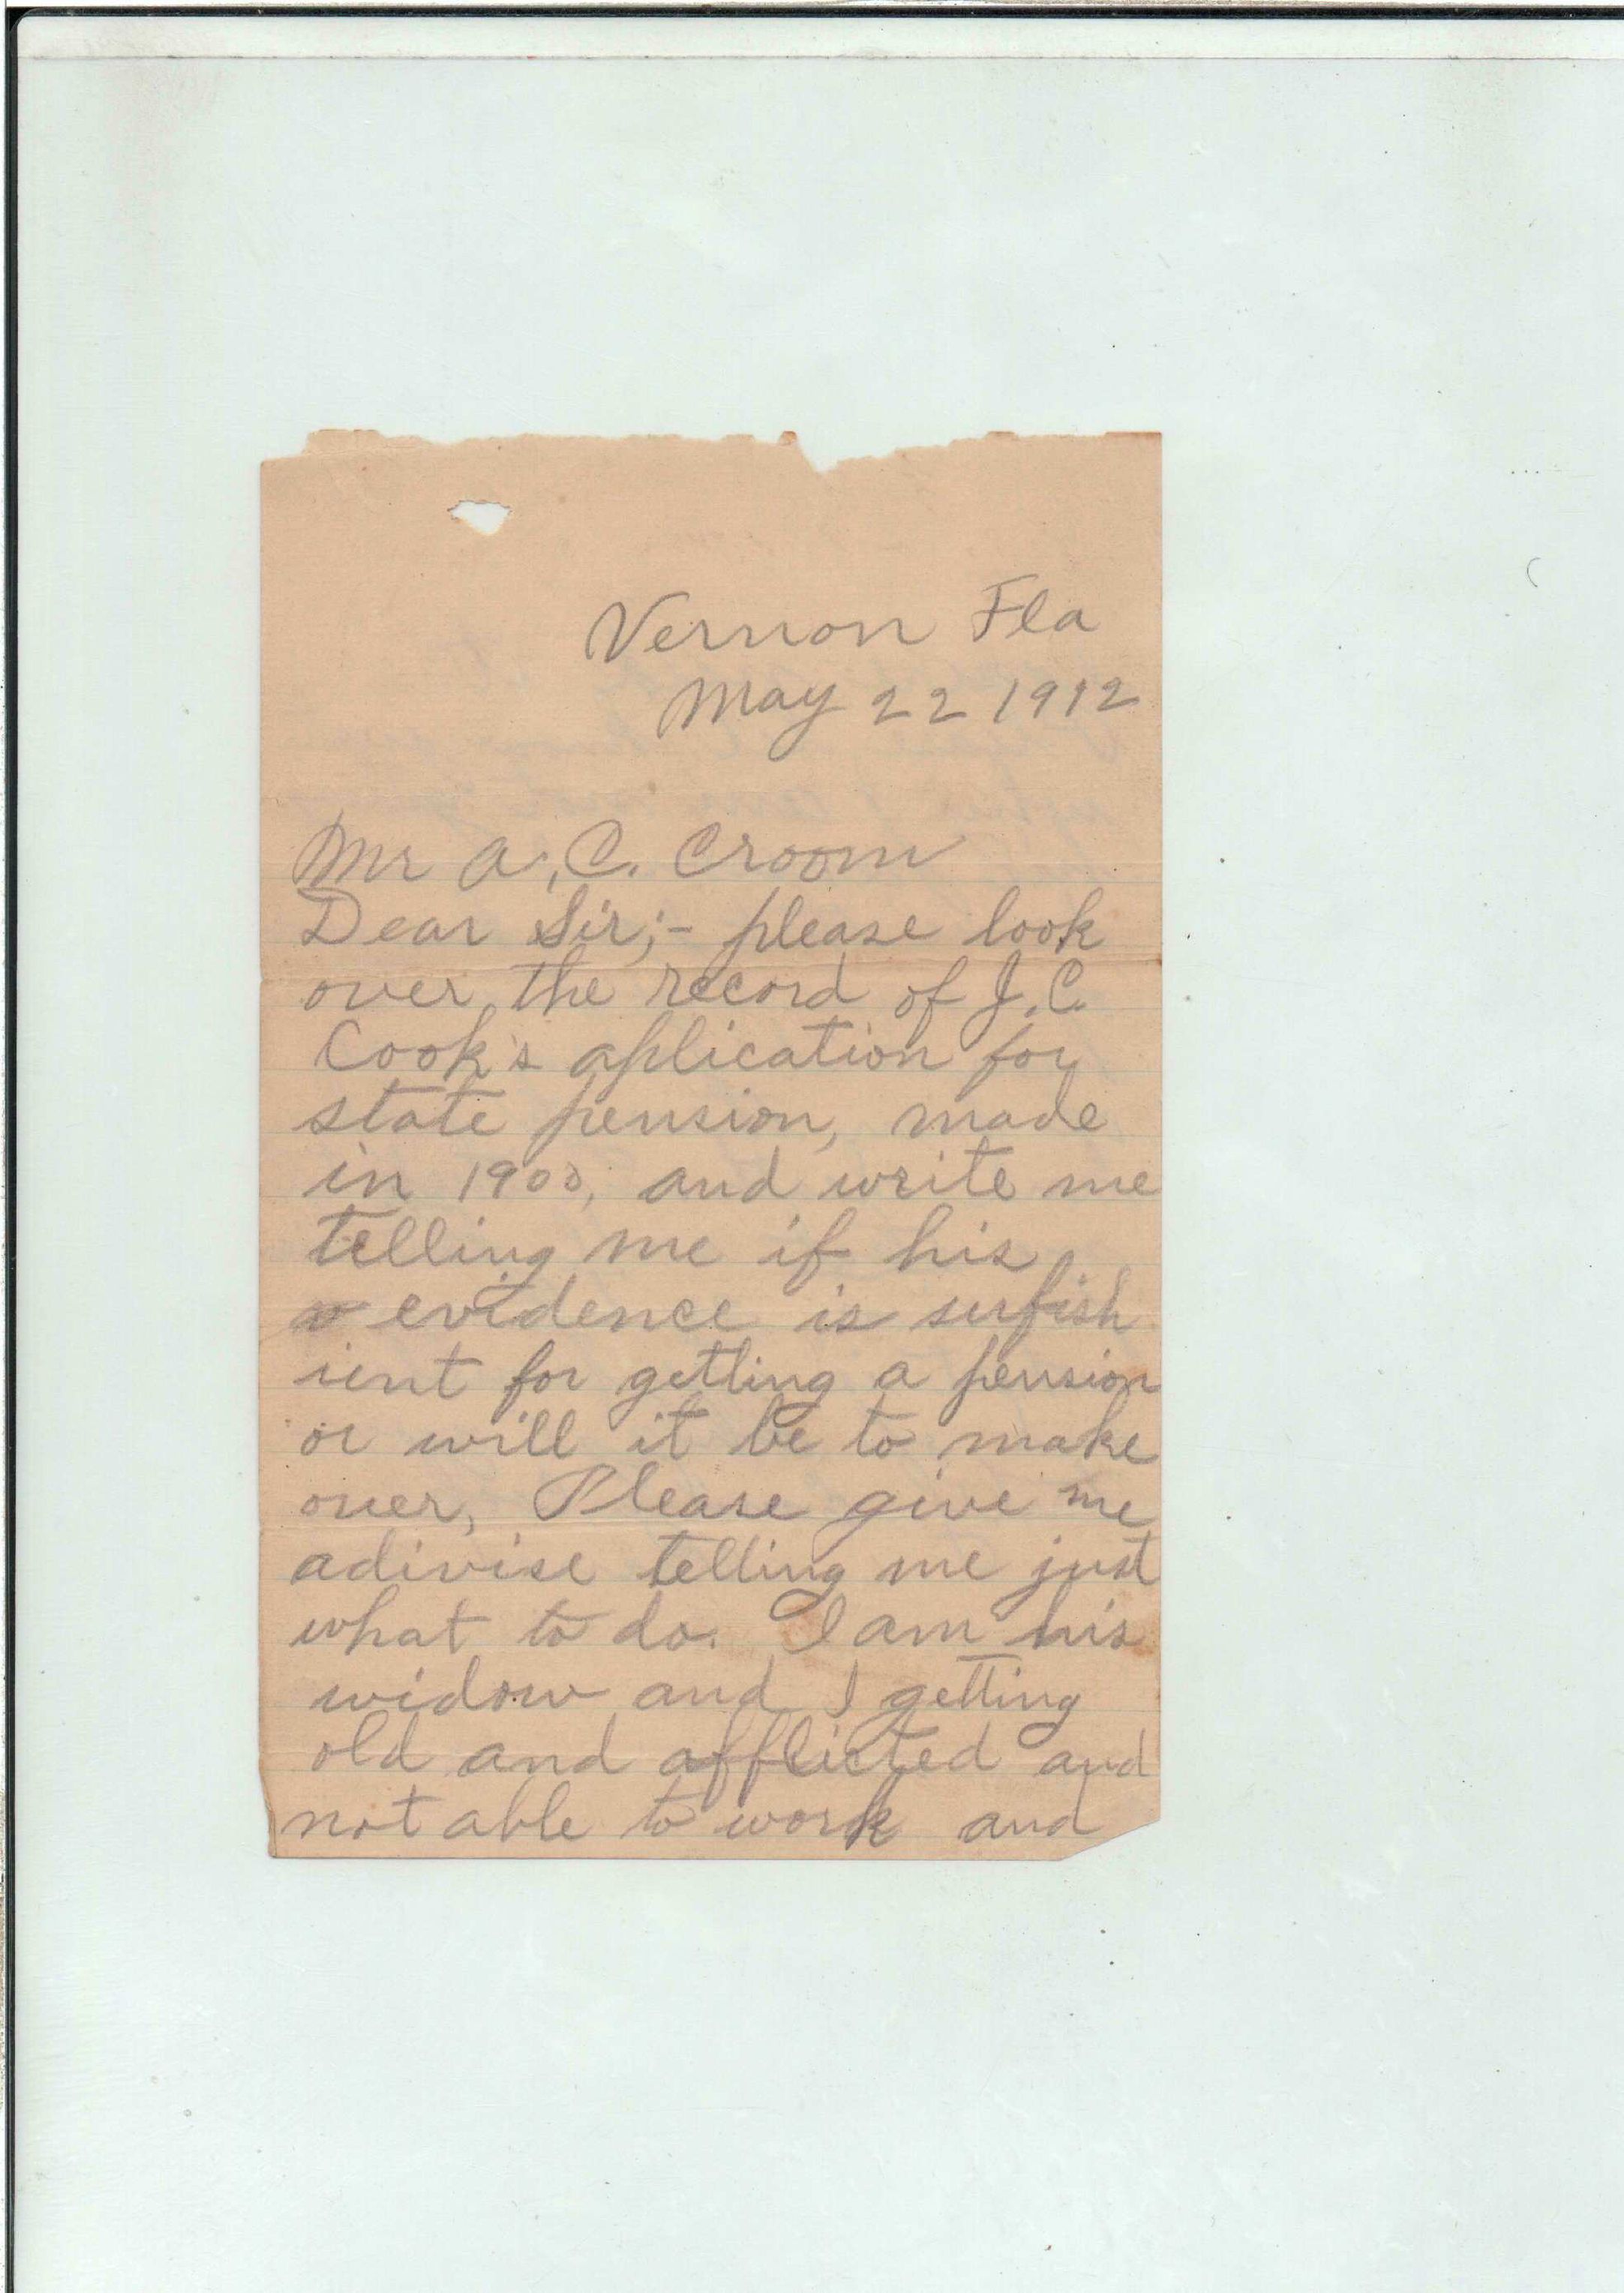 Vernon Fla
May 22 1912
Mr A, C. Croom
Dear Sir;- please look
over, the record of J. C.
Cook's aplication for
state pension, made
in 1903, and write me
telling me if his
evidence is surfish
ient for getting a pension
or will it be to make
over, Please give me
adivise telling me just
what to do. I am his
widow and I getting
old and afflicted and
not able to work and